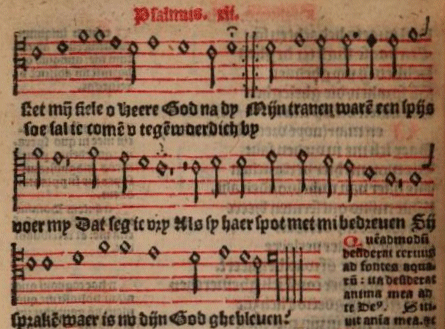 Psalmus. xli.
ket mij siele o heere God na dy Mijn tranen warē een spijs
soe sal ic comē v tegēwoerdich by
voer my Dat seg ic vry Als sy haer spot met mi bedreuen Sij
sprakē waer is nv dijn God ghebleuen?
Quēadmodū
desiderat ceruus
ad fontes aqua⸗
rū : ita desiderat
anima mea ad
te Deꝰ. Siti⸗
uit anīa mea.